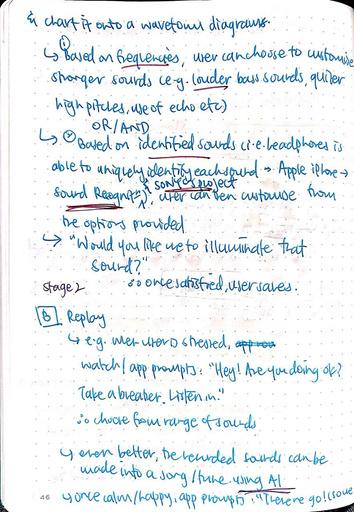 & chart it onto a waveform diagrams.
①
↳ Based on frequencies, user can choose to customise
stronger sounds (e.g. louder bass sounds, quiter
high pitches, use of echo etc)
OR/AND
↳ ② Based on identified sounds (i.e. headphones is
able to uniquely identify each sound → Apple iphone →
sound Recognit, user can then customise from
the options provided
↳ "Would you like me to illuminate that
sound?"
∴ once satisfied, user saves.
stage 2
B Replay
↳ e.g. when user is stressed,
watch/app prompts: "Hey! Are you doing ok?
Take a breather. Listen in."
∴ choose from range of sounds
↳ even better, the recorded sounds can be
made into a song/tune using AI
46 ↳ once calm/happy, app prompts: "There we go!